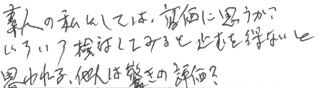 素人の私としては、高価に思うが?
いろいろ検討してみると止むを得ないと
思われる、他人は驚きの評価?